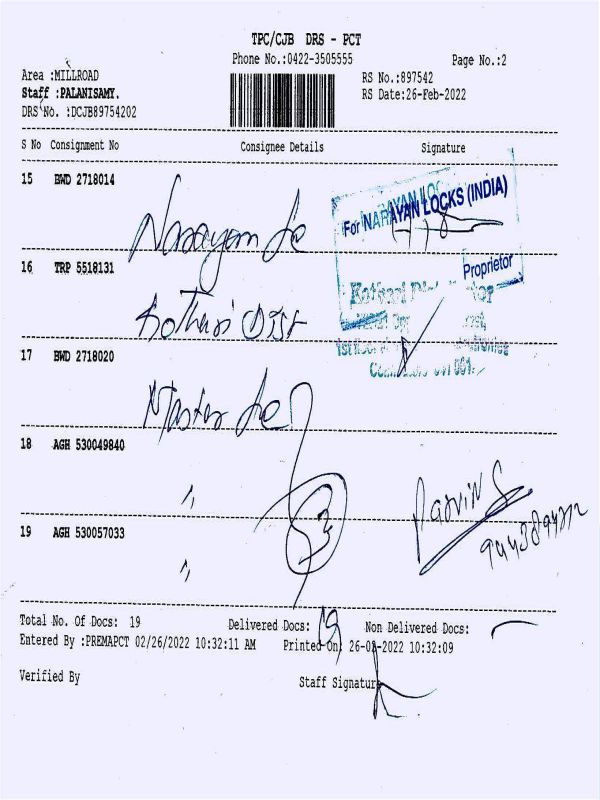 TPC/CJB DRS - PCT
Phone No.:0422-3505555 Page No.:2
Area :MILLROAD RS No.:897542
Staff :PALANISAMY. RS Date:26-Feb-2022
DRS No. :DCJB89754202
S No Consignment No Consignee Details Signature
15 BWD 2718014
Narayan
For NARAYAN LOCKS (INDIA)
Proprietor
16 TRP 5518131
Kothari Dist
Kothari
17 BWD 2718020
Master
18 AGH 530049840
"
Parvin S
19 AGH 530057033
"
Total No. Of Docs: 19 Delivered Docs: 19 Non Delivered Docs: —
Entered By :PREMAPCT 02/26/2022 10:32:11 AM Printed On: 26-02-2022 10:32:09
Verified By Staff Signature